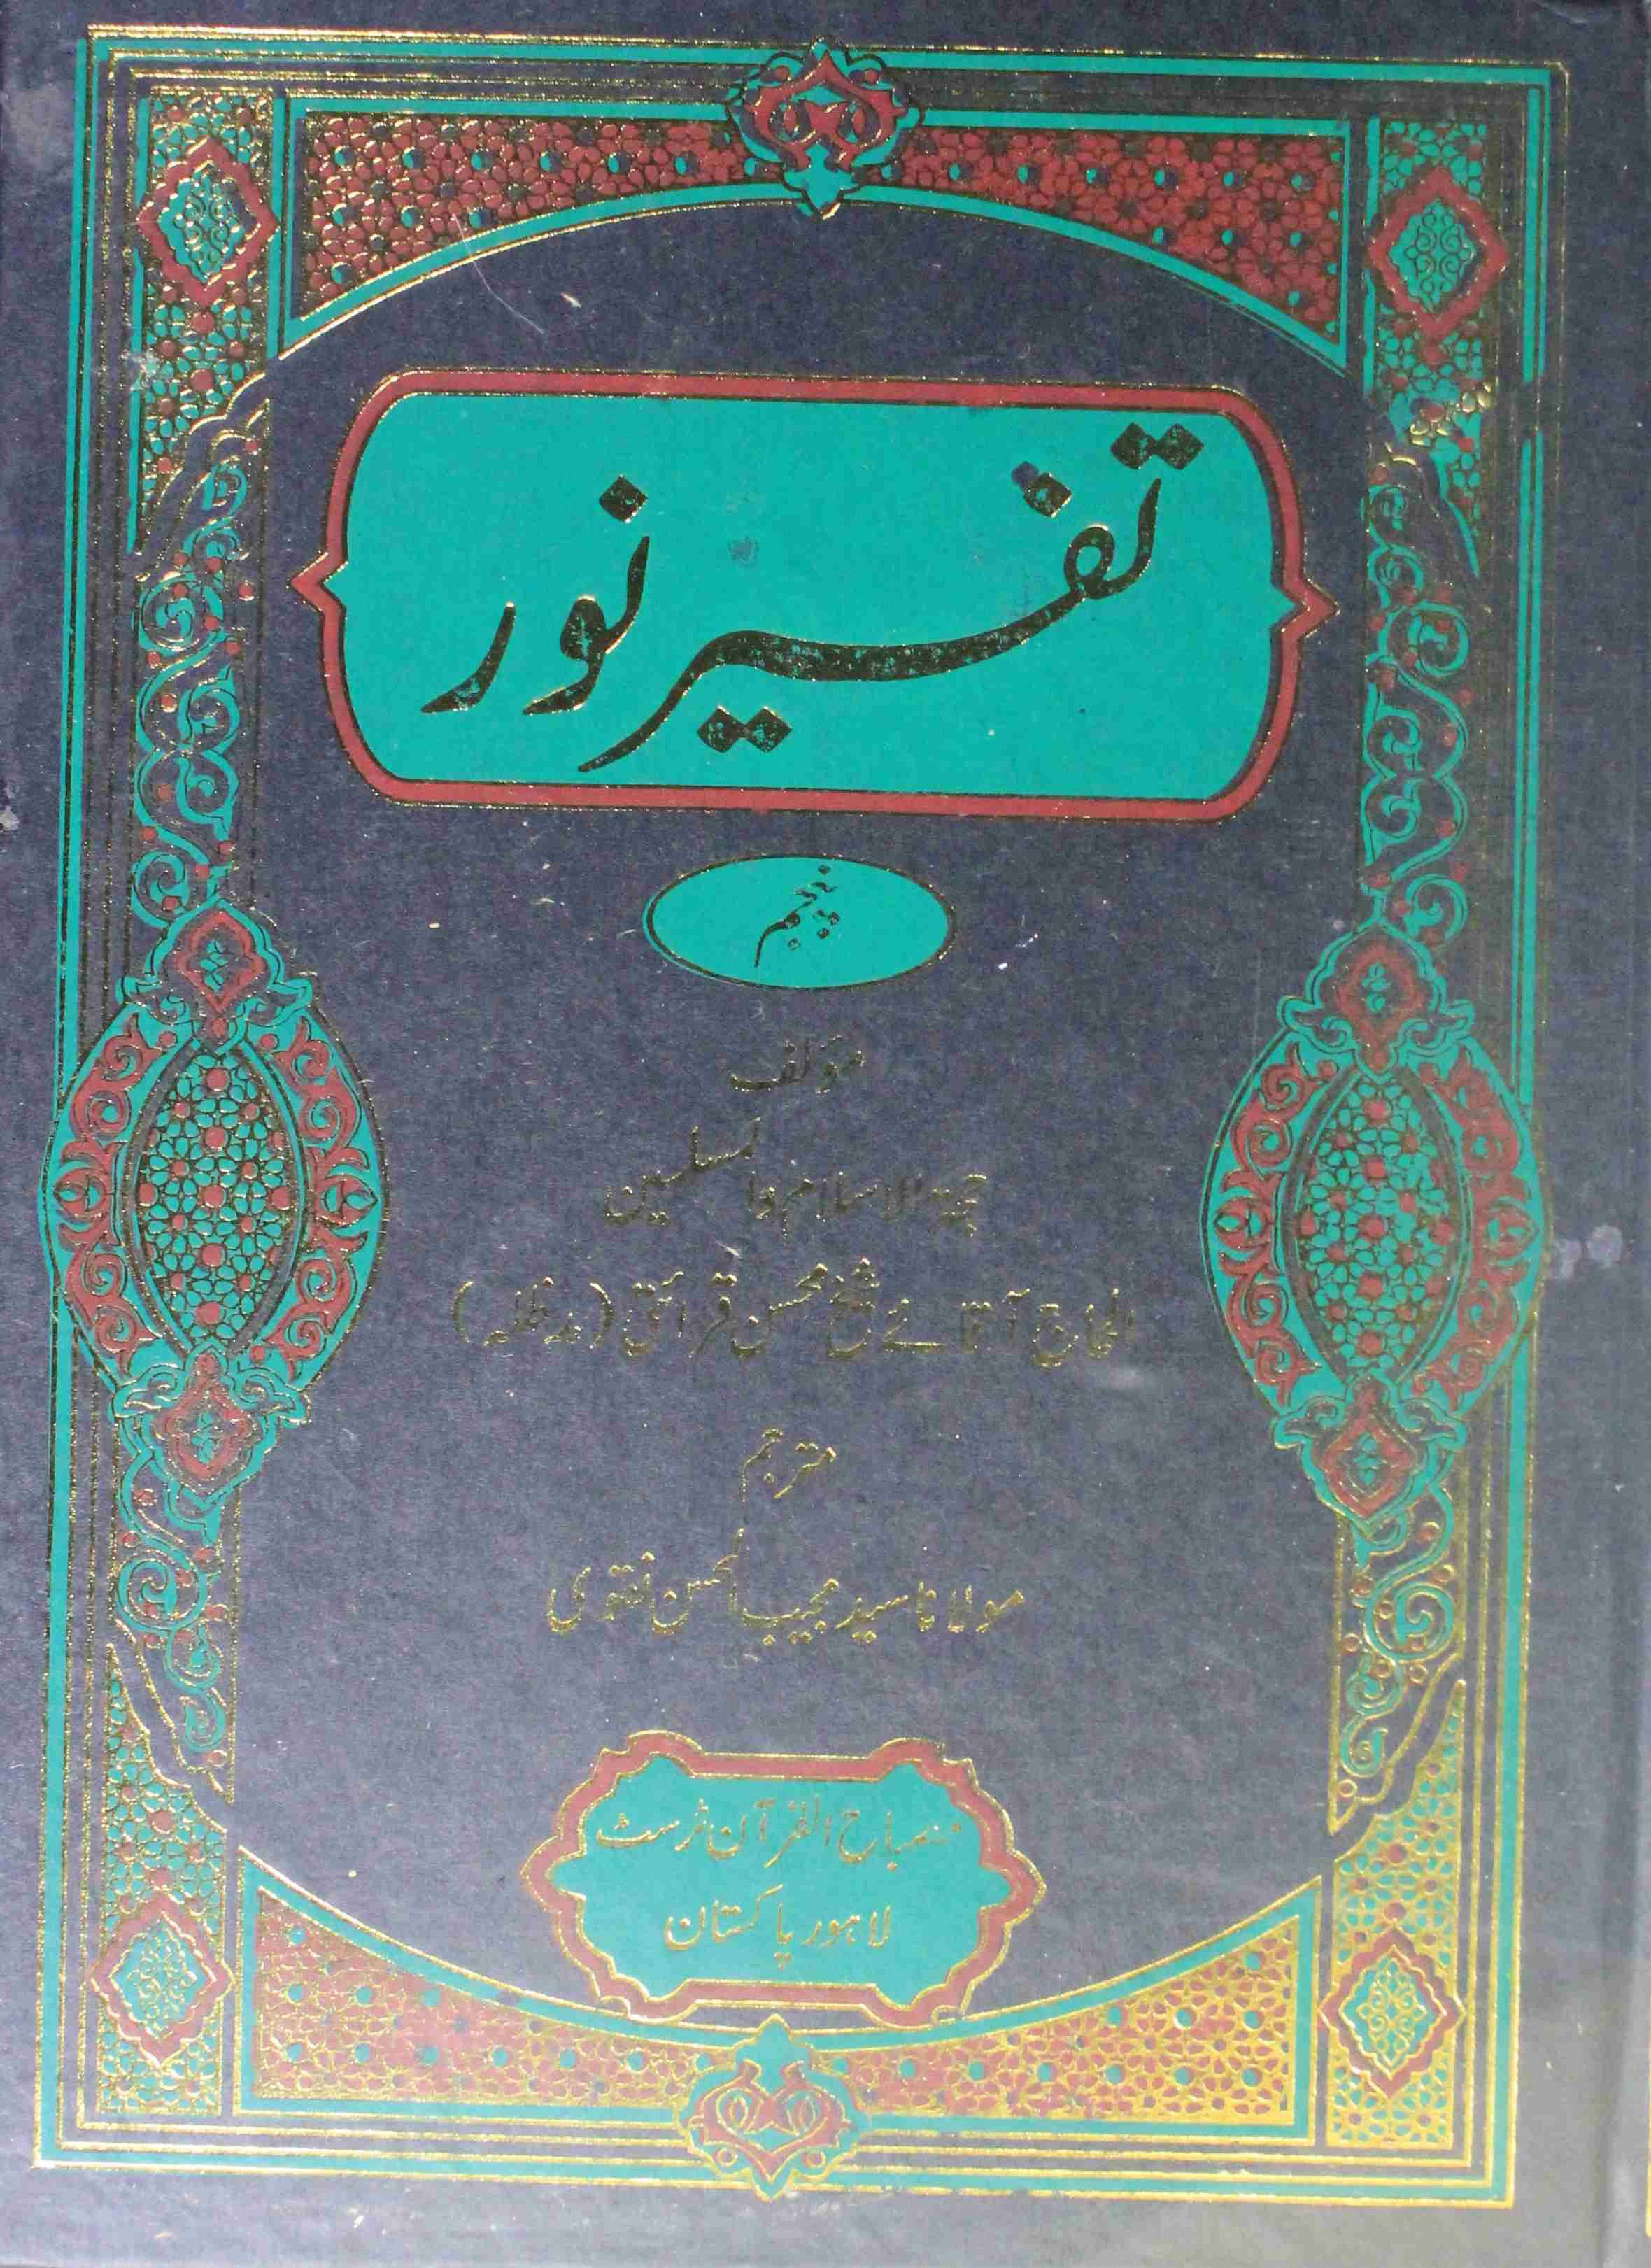 تفسیر نور
پنجم
مؤلف
حجۃ الاسلام والمسلمین
الحاج آقائے شیخ محسن قرائتی (مدظلہ)
مترجم
مولانا سید مجیب الحسن نقوی
مصباح القرآن ٹرسٹ
لاہور پاکستان